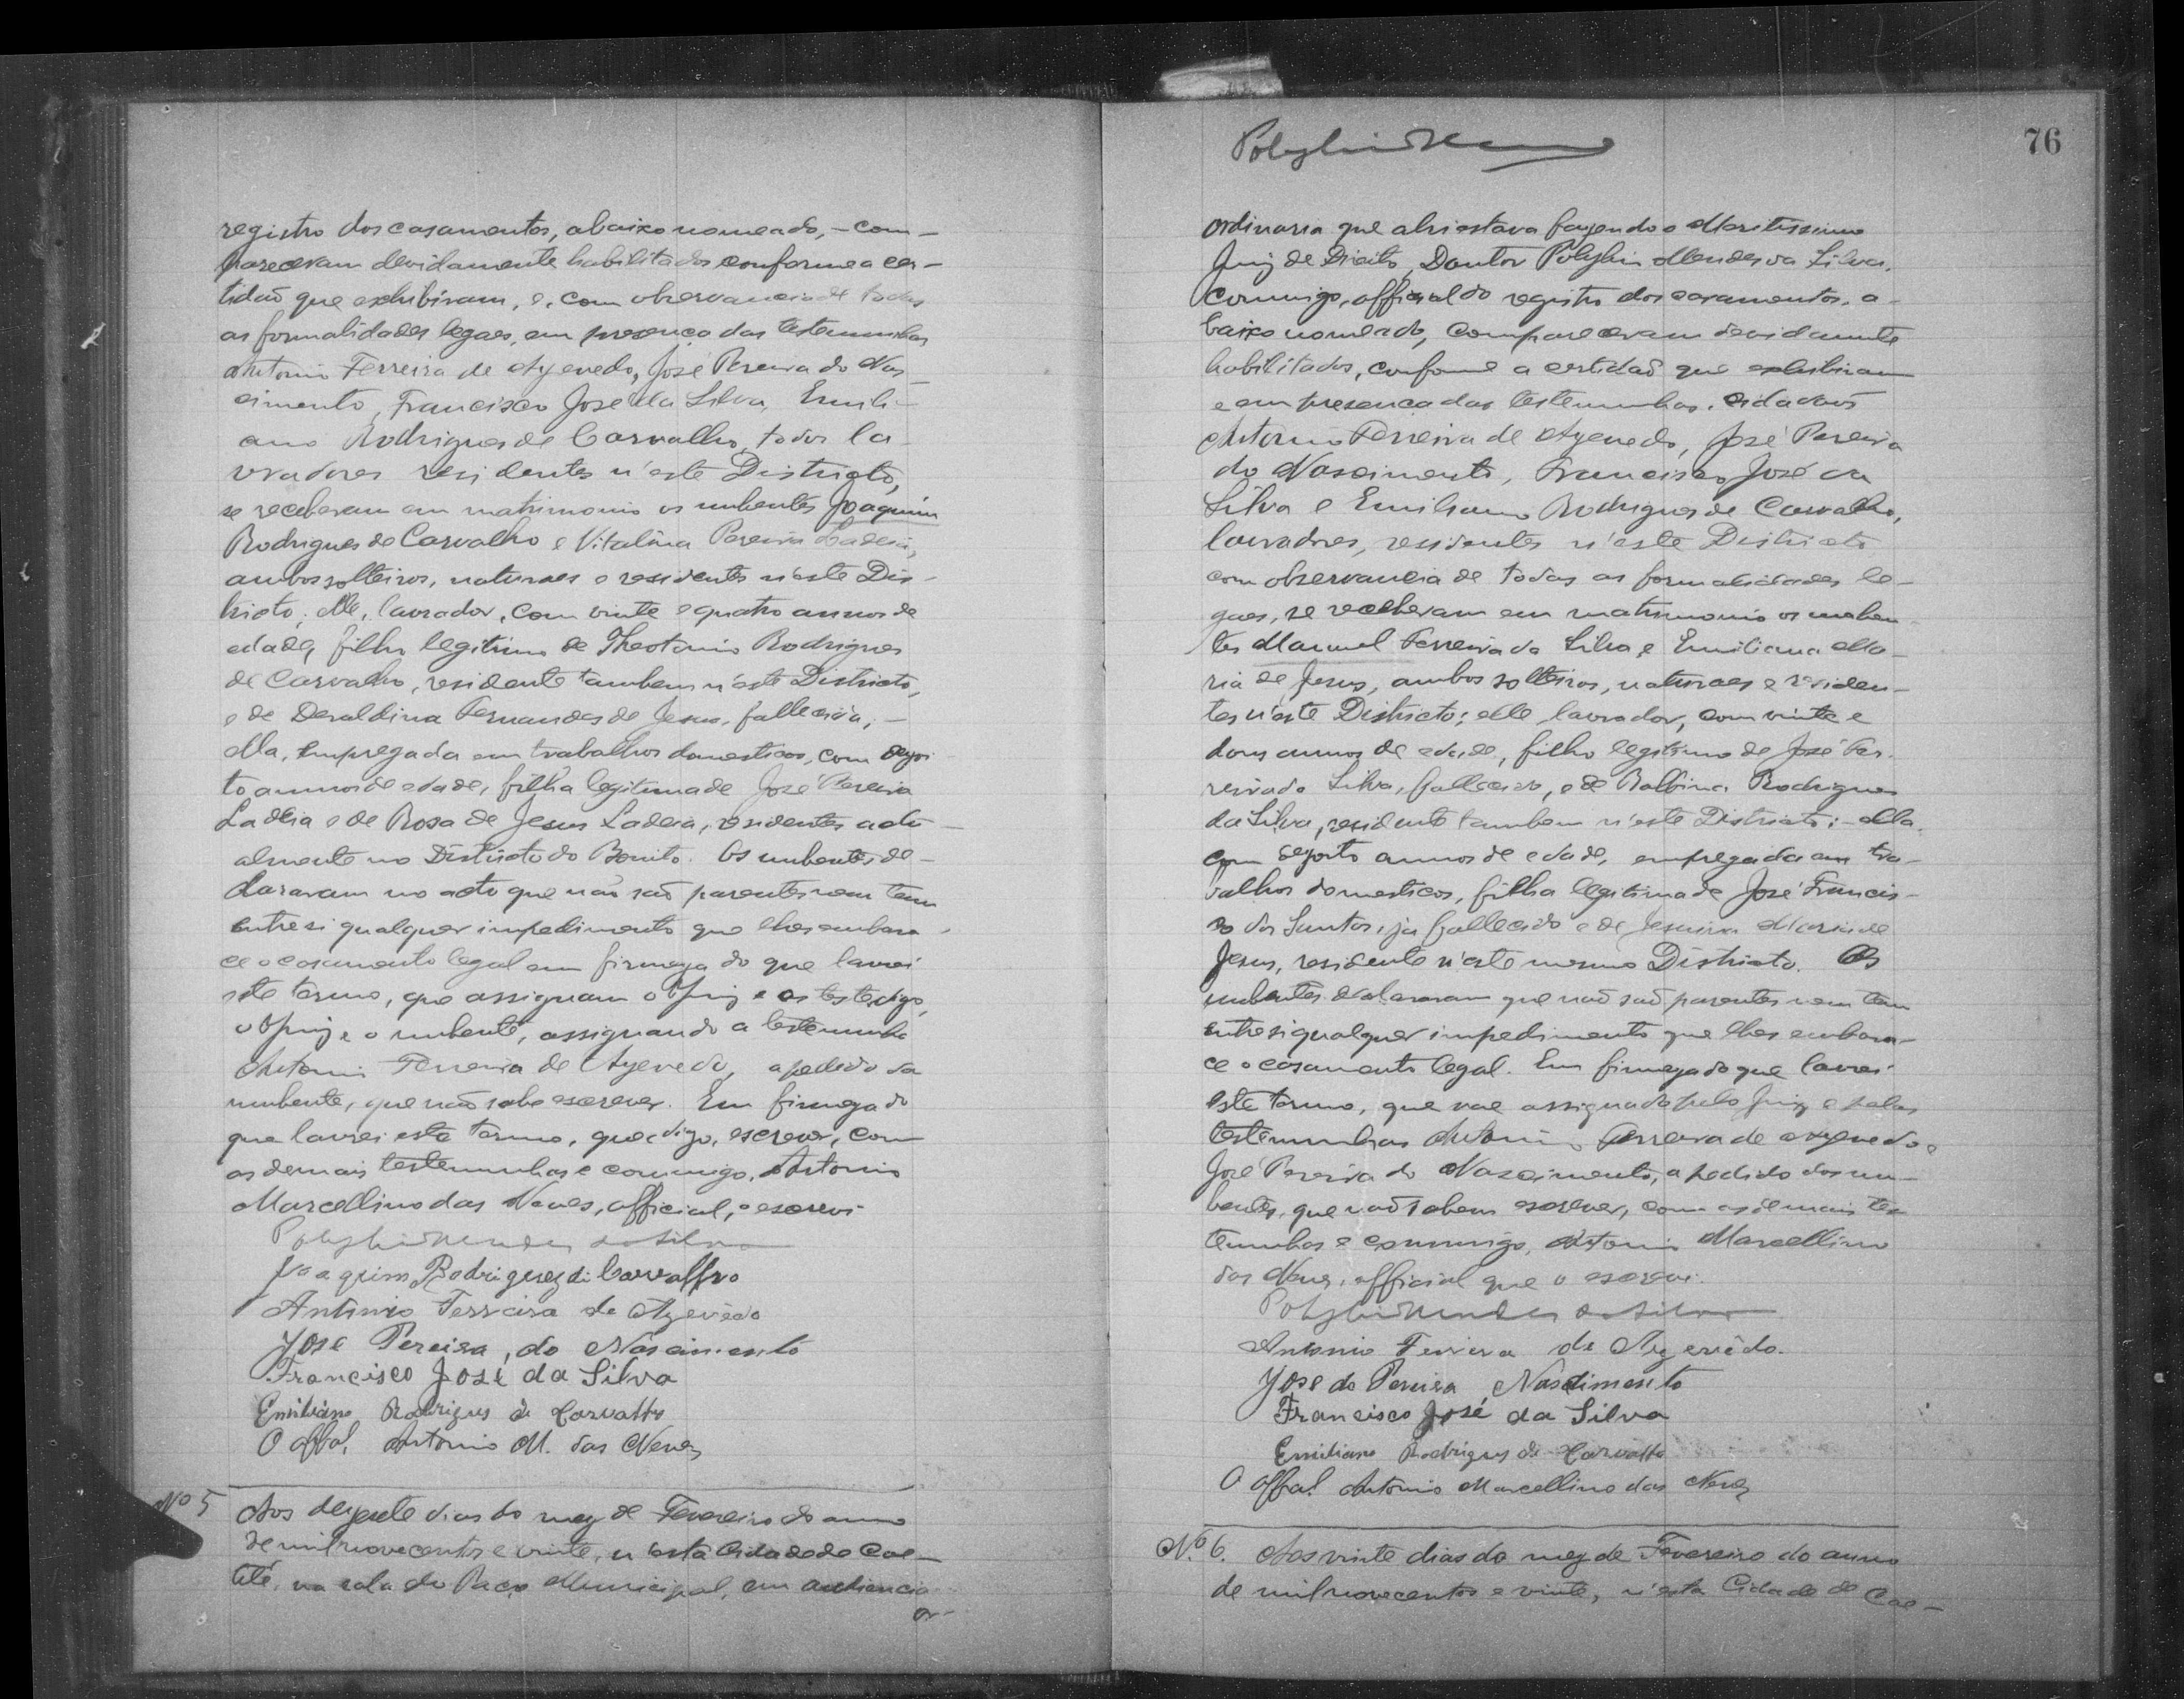 registro dos casamentos, abaixo nomeado, - com -
pareceram devidamente habilitados conforme a cer -
tidaõ que exhibiram, e, com observancia de todas
as formalidades legaes, em presença das testemunhas
Antonio Ferreira de Azevedo, José Pereira do Nas -
cimento, Francisco José da Silva, Emili -
ano Rodrigues de Carvalho, todos la -
vradores residentes n'este Districto,
se receberam em matrimonio os nubentes Joaquim
Rodrigues de Carvalho e Vitalina Pereira Ladeia,
ambos solteiros, naturaes e residentes n'este Dis -
tricto; elle, lavrador, com vinte e quatro annos de
edade, filho legitimo de Theotonio Rodrigues
de Carvalho, residente tambem n'este Districto,
e de Deraldina Fernandes de Jesus, fallecida; -
ella, empregada em trabalhos domesticos, com dezoi
to annos de edade, filha legitima de José Pereira
Ladeia e de Rosa de Jesus Ladeia, residentes actu -
almente no Districto do Bonito. Os nubentes de -
clararam no acto que não saõ parentes nem tem
entre si qualquer impedimento que lhes embara -
ce o casamento legal em firmeza do que lavrei
este termo, que assignam o Juiz e as test. digo,
o Juiz e o nubente, assignando a testemunha
Antonio Ferreira de Azevedo, a pedido da
nubente, que não sabe escrever. Em firmeza do
que lavrei este termo, que, digo, escrever, com
as demais testemunhas e commigo, Antonio
Marcellino das Neves, official, o escrevi.
Polybio Mendes da Silva
Joaquim Rodriguez di Carvalho
Antonio Ferreira de Azevêdo
Jose Pereira, do Nascimento
Francisco José da Silva
Emiliano Rodrigues de Carvalho
O offal. Antonio M. das Neves
Nº 5 Aos dezesete dias do mez de Fevereiro do anno
de mil novecentos e vinte, n'esta Cidade de Cae -
tité, na sala do Paço Municipal, em audiencia
or -
76
ordinaria que ahi estava fazendo o Meritissimo
Juiz de Direito, Doutor Polybio Mendes da Silva,
commigo, official do registro dos casamentos, a -
baixo nomeado, compareceram devidamente
habilitados, conforme a certidaõ que exhibiram
e em presença das testemunhas, cidadaõs
Antonio Ferreira de Azevedo, José Pereira
do Nascimento, Francisco José da
Silva e Emiliano Rodrigues de Carvalho,
lavradores, residentes n'este Districto
com observancia de todas as formalidades le -
gaes, se receberam em matrimonio os nuben
tes Manuel Ferreira da Silva e Emiliana Ma -
ria de Jesus, ambos solteiros, naturaes e residen -
tes n'este Districto; elle lavrador, com vinte e
dous annos de edade, filho legitimo de José Fer -
reira da Silva, fallecido, e de Balbina Rodrigues
da Silva, residente tambem n'este Districto: - ella,
com dezoito annos de edade, empregada em tra -
balhos domesticos, filha legitima de José Francis -
co dos Santos, já fallecido e de Jesuina Maria de
Jesus, residente n'este mesmo Districto. Os
nubentes declararam que naõ saõ parentes nem tem
entre si qualquer impedimento que lhes embara -
ce o casamento legal. Em firmeza do que lavrei
este termo, que vae assignado pelo Juiz e pelas
testemunhas Antonio Ferreira de Azevedo e
José Pereira do Nascimento, a pedido dos nu -
bentes, que naõ sabem escrever, com as demais tes
temunhas e commigo, Antonio Marcellino
das Neves, official que o escrevi.
Polybio Mendes da Silva
Antonio Ferreira de Azevêdo.
Jose do Pereira Nascimento
Francisco José da Silva
Emiliano Rodrigues de Carvalho
O offal. Antonio Marcellino das Neves
Nº 6. Aos vinte dias do mez de Fevereiro do anno
de mil novecentos e vinte, n'esta Cidade de Cae -